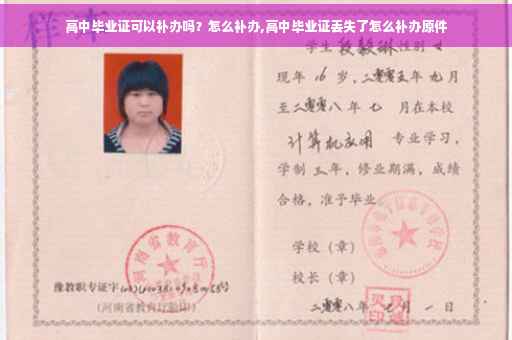 高中毕业证可以补办吗？怎么补办,高中毕业证丢失了怎么补办原件
样本
学生 段毅琳 性别 女
现年 16 岁，二零零五年 九月
至二零零八年 七 月在本校
计算机应用 专业学习，
学制 三年，修业期满，成绩
合格，准予毕业。
学校（章）
校长（章）
二零零八年 七月 一 日
河南省教育厅
豫教职专证字
（河南省教育厅验印）